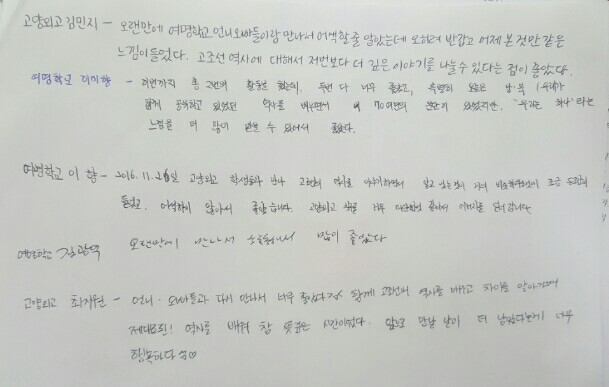 고양외고 김민지 - 오랜만에 여명학교 언니오빠들이랑 만나서 어색할줄 알았는데 오히려 반갑고 어제 본것만 같은
느낌이들었다. 고조선 역사에 대해서 저번보다 더 깊은 이야기를 나눌수 있다는 점이 좋았다.
여명학교 - 이번까지 총 2번의 활동을 했는데, 두번 다 너무 좋았고, 특별히 오늘은 남·북
함께 공유하고 있었던 역사를 배우면서 비록 70여년의 분단이 있었지만, "우리는 하나" 라는
느낌을 더 많이 받을 수 있어서 좋았다.
여명학교 이 향 - 2016.11.26일 고양외고 학생들과 만나 고조선 역사를 이야기하면서 알고 있는것이 거의 조금
들었고, 어색하지 않아서 좋았습니다. 고양외고 너무
여명학교 김광혁 오랜만에 만나서 소통해서 많이 좋았다
고양외고 최지원 - 언니·오빠들과 다시 만나서 너무 좋았다 함께 고조선의 역사를 배우고 차이를 알아가면서
제대로된! 역사를 배워 참 뜻깊은 시간이었다. 앞으로 만날 날이 더 남았다는게 너무
행복하다 ♡